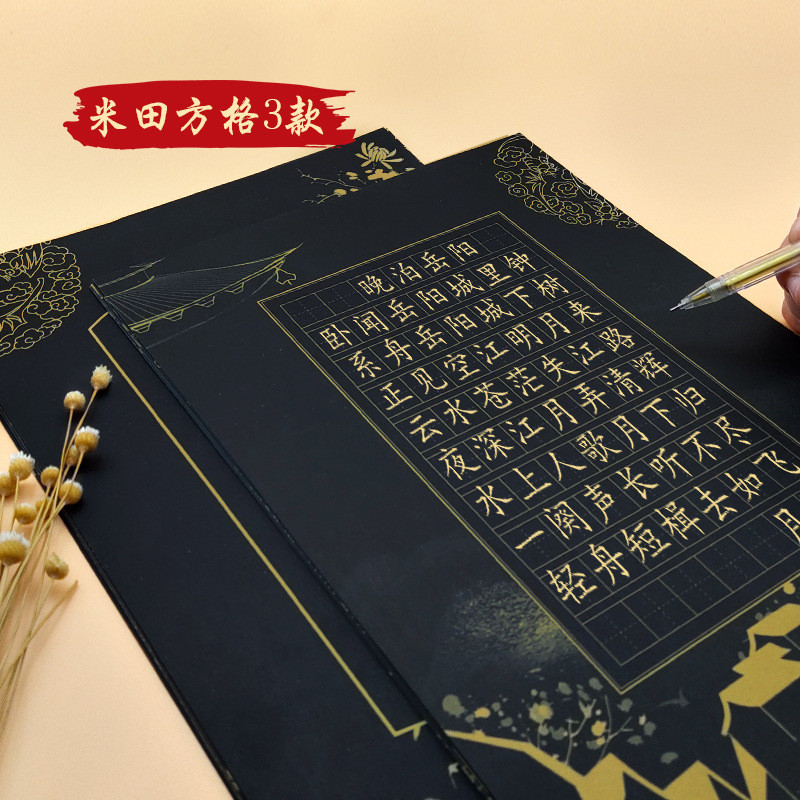 米田方格3款
晚泊岳阳
卧闻岳阳城里钟
系舟岳阳城下树
正见空江明月来
云水苍茫失江路
夜深江月弄清辉
水上人歌月下归
一阕声长听不尽
轻舟短楫去如飞